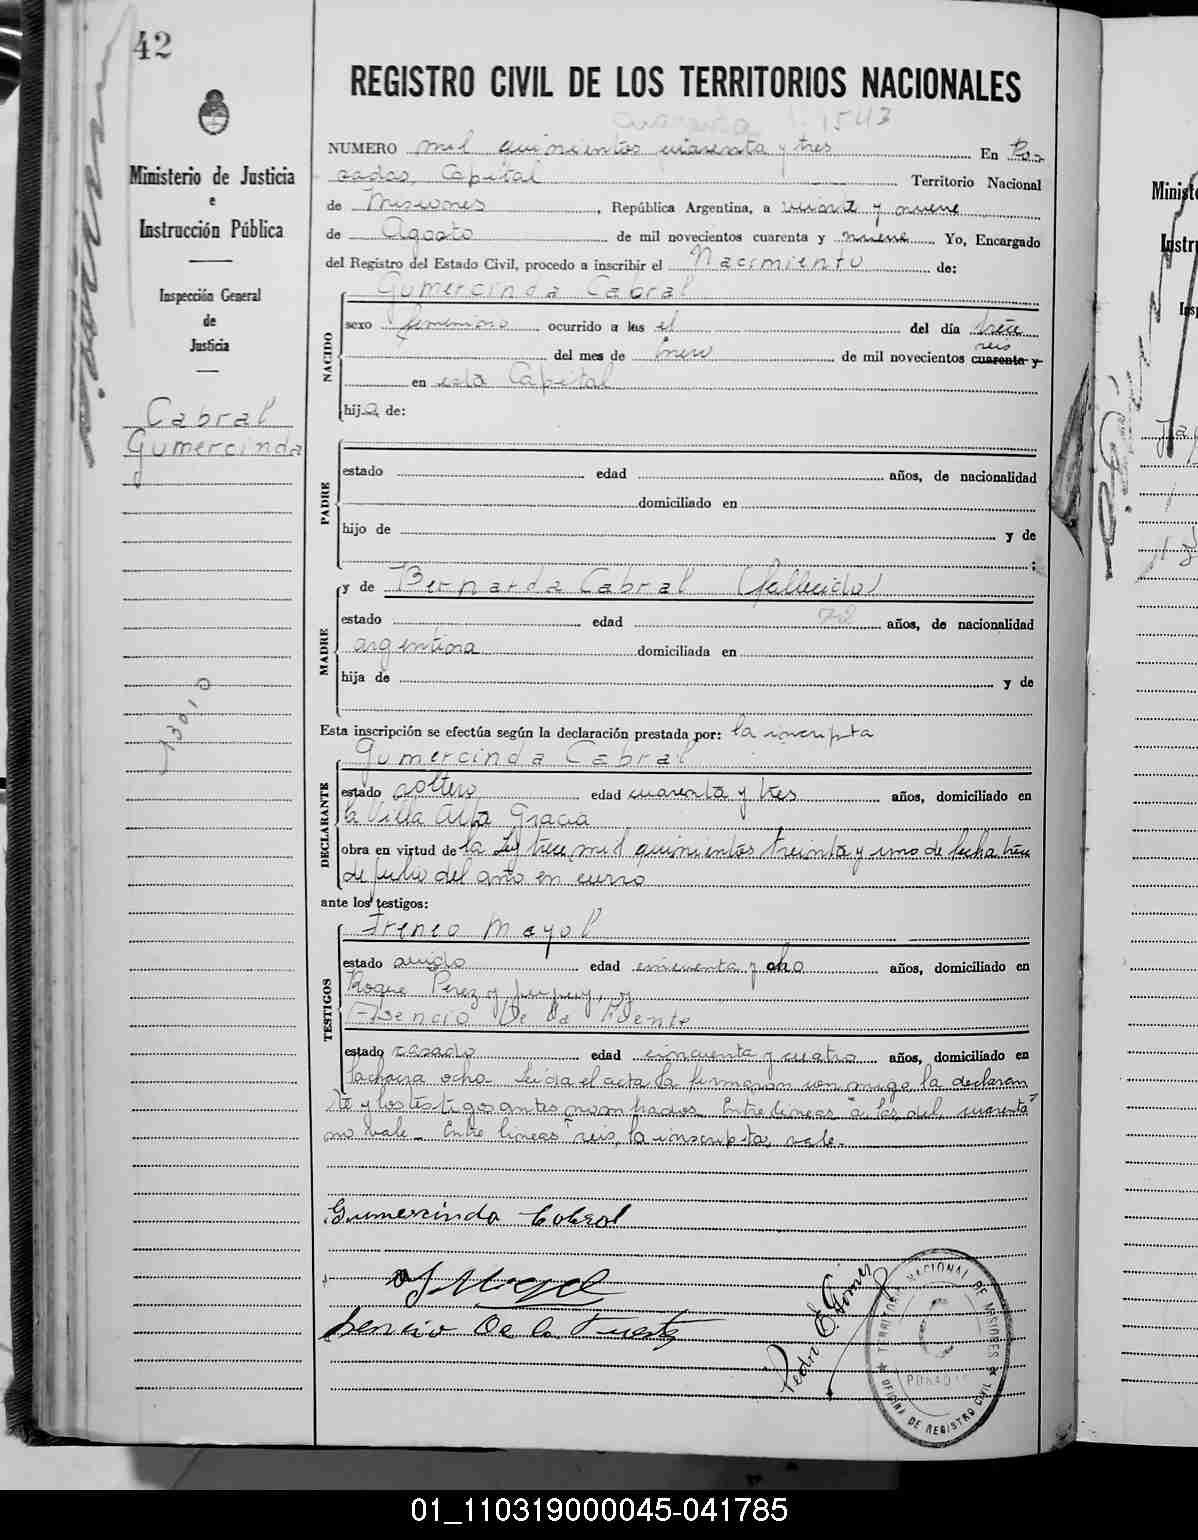 42
Ministerio de Justicia
e
Instrucción Pública
Inspección General
de
Justicia
Cabral
Gumercinda
REGISTRO CIVIL DE LOS TERRITORIOS NACIONALES
cuarenta 1543
NUMERO mil quinientos cuarenta y tres En Po-
sadas, Capital Territorio Nacional
de Misiones, República Argentina, a veinte y nueve
de Agosto de mil novecientos cuarenta y nueve Yo, Encargado
del Registro del Estado Civil, procedo a inscribir el Nacimiento de:
Gumercinda Cabral
NACIDO
sexo femenino ocurrido a las el del día trece
seis
del mes de Enero de mil novecientos cuarenta y
en esta Capital
hija de:
PADRE
estado edad años, de nacionalidad
domiciliado en
hijo de y de
;
y de Bernarda Cabral (fallecida)
MADRE
estado edad 72 años, de nacionalidad
argentina domiciliada en
hija de y de
Esta inscripción se efectúa según la declaración prestada por: la inscripta
Gumercinda Cabral
DECLARANTE
estado soltera edad cuarenta y tres años, domiciliado en
la Villa Alta Gracia
obra en virtud de la Ley trece mil quinientos treinta y uno de fecha trece
de julio del año en curso
ante los testigos:
Ireneo Mayol
TESTIGOS
estado viudo edad cincuenta y ocho años, domiciliado en
Roque Perez y Jujuy, y
Asencio De la Fuente
estado casado edad cincuenta y cuatro años, domiciliado en
la chacra ocho. Leída el acta la firmaron conmigo la declaran
te y los testigos antes nombrados. Entre lineas "a las, del, cuarenta"
no vale. Entre lineas "seis, la inscripta, vale.
Gumercinda Cabral
I Mayol
Asencio De la Fuente
Pedro E. Gómez
TERRITORIO NACIONAL DE MISIONES
POSADAS
OFICINA DE REGISTRO CIVIL
Ministe
Instru
Insp
01_110319000045-041785